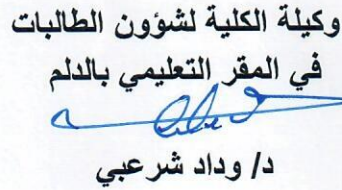 وكيلة الكلية لشؤون الطالبات
في المقر التعليمي بالدلم
د/ وداد شرعبي